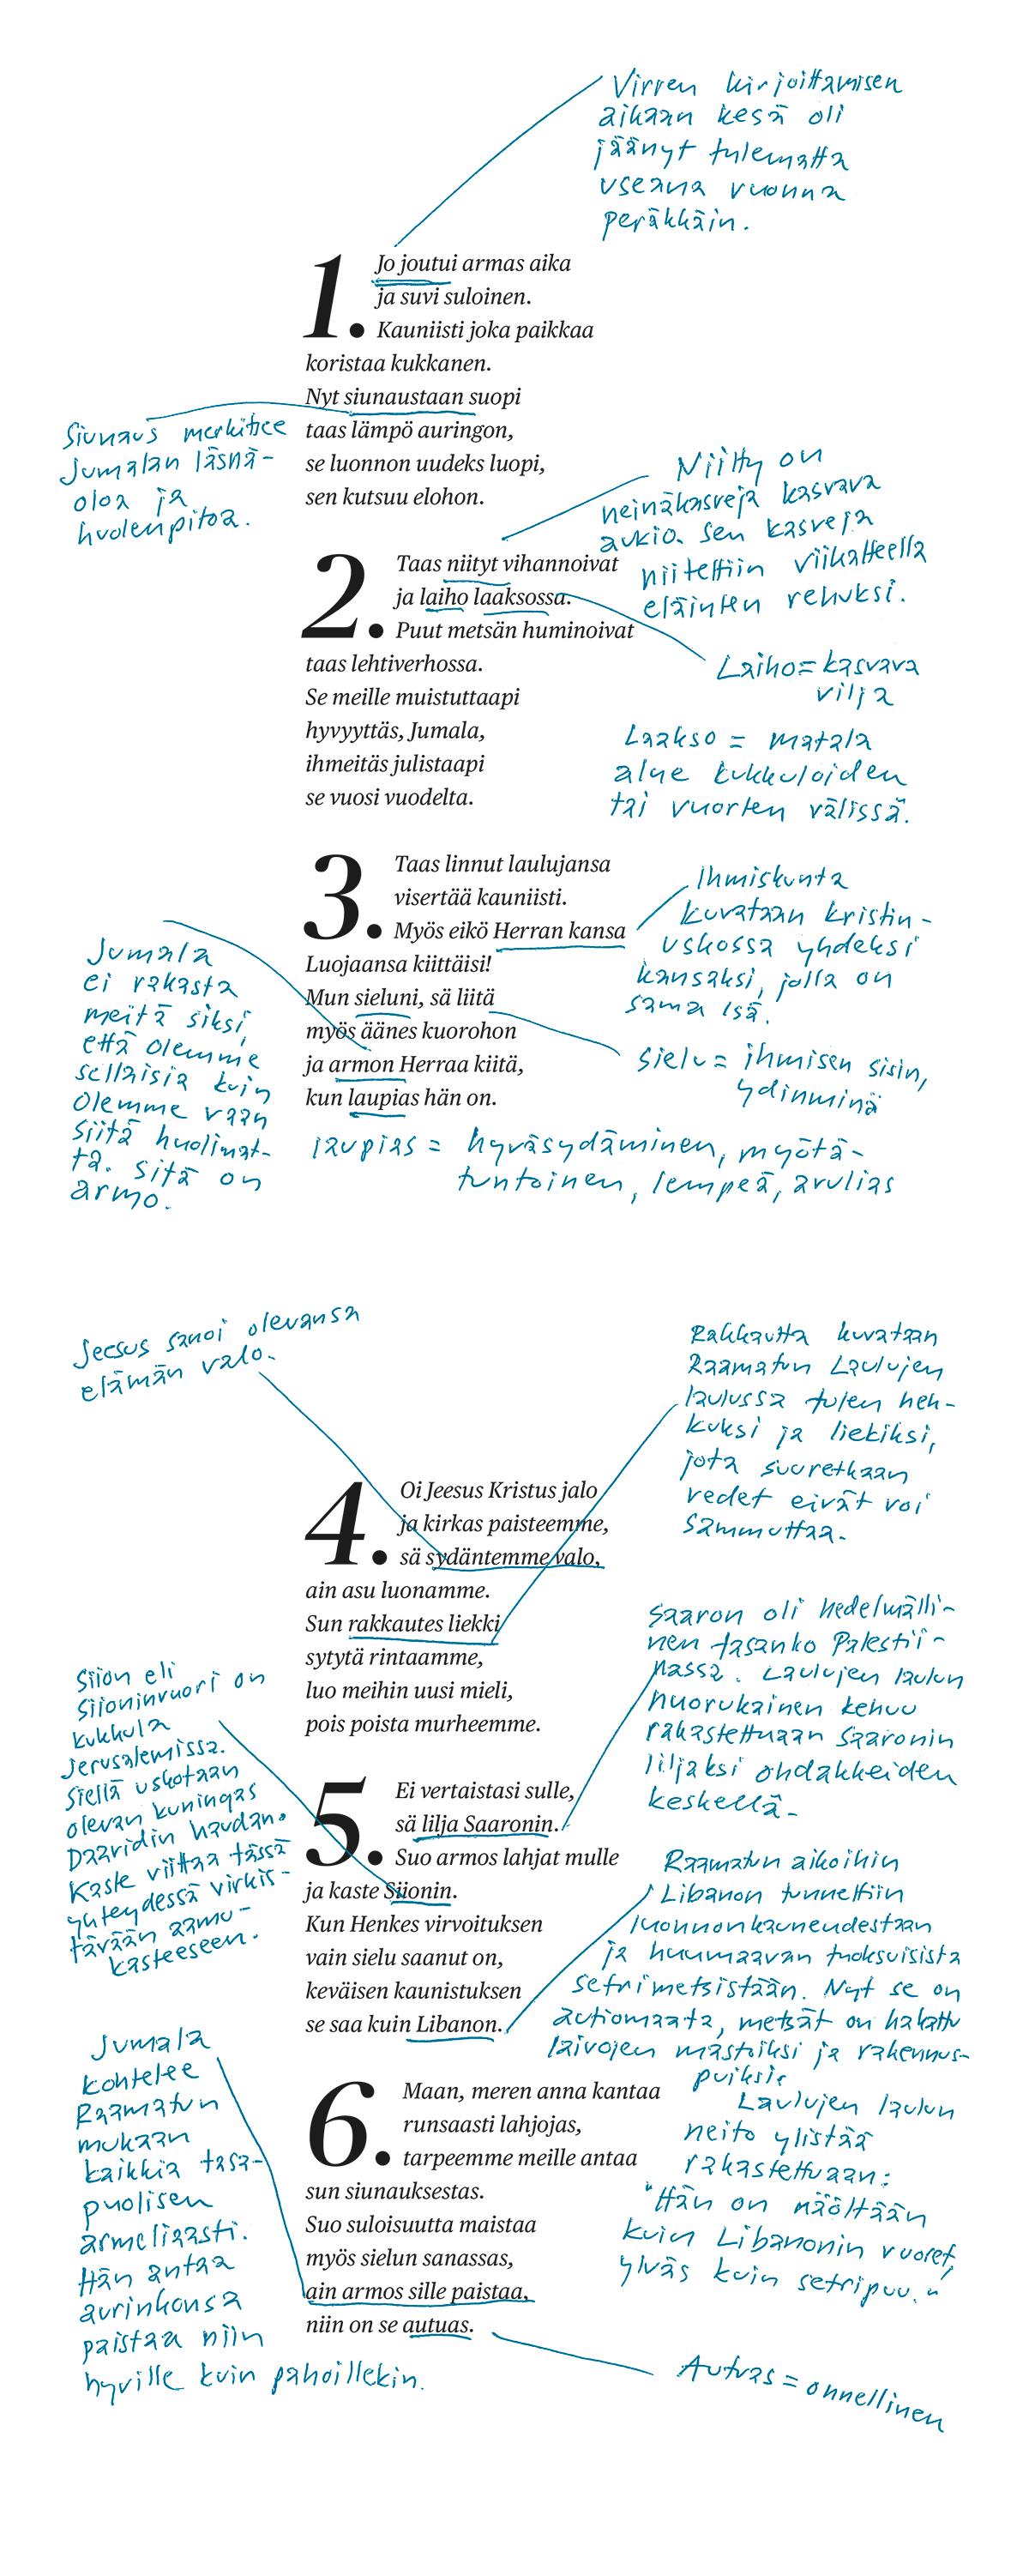 Virren kirjoittamisen
aikaan kesä oli
jäänyt tulematta
useana vuonna
peräkkäin.
1. Jo joutui armas aika
ja suvi suloinen.
Kauniisti joka paikkaa
koristaa kukkanen.
Nyt siunaustaan suopi
taas lämpö auringon,
se luonnon uudeks luopi,
sen kutsuu elohon.
Siunaus merkitsee
Jumalan läsnä-
oloa ja
huolenpitoa.
Niitty on
heinäkasveja kasvava
aukio. Sen kasveja
niitettiin viikatteella
eläinten rehuksi.
2. Taas niityt vihannoivat
ja laiho laaksossa.
Puut metsän huminoivat
taas lehtiverhossa.
Se meille muistuttaapi
hyvyyttäs, Jumala,
ihmeitäs julistaapi
se vuosi vuodelta.
Laiho = kasvava
vilja
Laakso = matala
alue kukkuloiden
tai vuorten välissä.
3. Taas linnut laulujansa
visertää kauniisti.
Myös eikö Herran kansa
Luojaansa kiittäisi!
Mun sieluni, sä liitä
myös äänes kuorohon
ja armon Herraa kiitä,
kun laupias hän on.
Ihmiskunta
kuvataan kristin-
uskossa yhdeksi
kansaksi, jolla on
sama Isä.
Jumala
ei rakasta
meitä siksi,
että olemme
sellaisia kuin
olemme vaan
siitä huolimat-
ta. Sitä on
armo.
Sielu = ihmisen sisin,
ydinminä
laupias = hyväsydäminen, myötä-
tuntoinen, lempeä, avulias
Jeesus sanoi olevansa
elämän valo.
Rakkautta kuvataan
Raamatun Laulujen
laulussa tulen heh-
kuksi ja liekiksi,
jota suuretkaan
vedet eivät voi
sammuttaa.
4. Oi Jeesus Kristus jalo
ja kirkas paisteemme,
sä sydäntemme valo,
ain asu luonamme.
Sun rakkautes liekki
sytytä rintaamme,
luo meihin uusi mieli,
pois poista murheemme.
Saaron oli hedelmälli-
nen tasanko Palestii-
nassa. Laulujen laulun
nuorukainen kehuu
rakastettuaan Saaronin
liljaksi ohdakkeiden
keskellä.
Siion eli
Siioninvuori on
kukkula
Jerusalemissa.
Siellä uskotaan
olevan kuningas
Daavidin haudan.
Kaste viittaa tässä
yhteydessä virkis-
tävään aamu-
kasteeseen.
5. Ei vertaistasi sulle,
sä lilja Saaronin.
Suo armos lahjat mulle
ja kaste Siionin.
Kun Henkes virvoituksen
vain sielu saanut on,
keväisen kaunistuksen
se saa kuin Libanon.
Raamatun aikoihin
Libanon tunnettiin
luonnonkauneudestaan
ja huumaavan tuoksuisista
setrimetsistään. Nyt se on
autiomaata, metsät on hakattu
laivojen mastoiksi ja rakennus-
puiksi.
Laulujen laulun
neito ylistää
rakastettuaan:
"Hän on näöltään
kuin Libanonin vuoret,
ylväs kuin setripuu."
Jumala
kohtelee
Raamatun
mukaan
kaikkia tasa-
puolisen
armeliaasti.
Hän antaa
aurinkonsa
paistaa niin
hyville kuin pahoillekin.
6. Maan, meren anna kantaa
runsaasti lahjojas,
tarpeemme meille antaa
sun siunauksestas.
Suo suloisuutta maistaa
myös sielun sanassas,
ain armos sille paistaa,
niin on se autuas.
Autuas = onnellinen